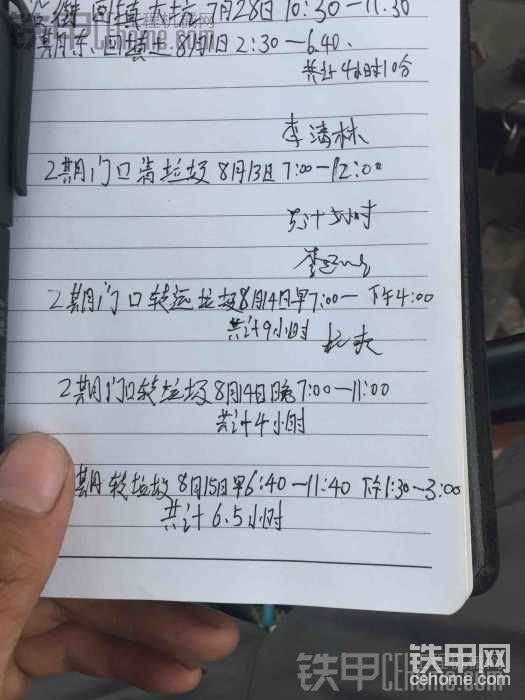 回填大坑 7月28日 10:30—11:30
期东 回填土 8月1日 2:30—6.40.
共计4小时10分
李满林
2期门口清垃圾 8月13日 7:00—12:00
共计5小时
2期门口转运垃圾8月14日早7:00— 下午4:00
共计9小时
2期门口转垃圾8月14日晚7:00—11:00
共计4小时
期转垃圾8月15日早6:40—11:40 下午1:30—3:00
共计6.5小时
铁甲网
cehome.com